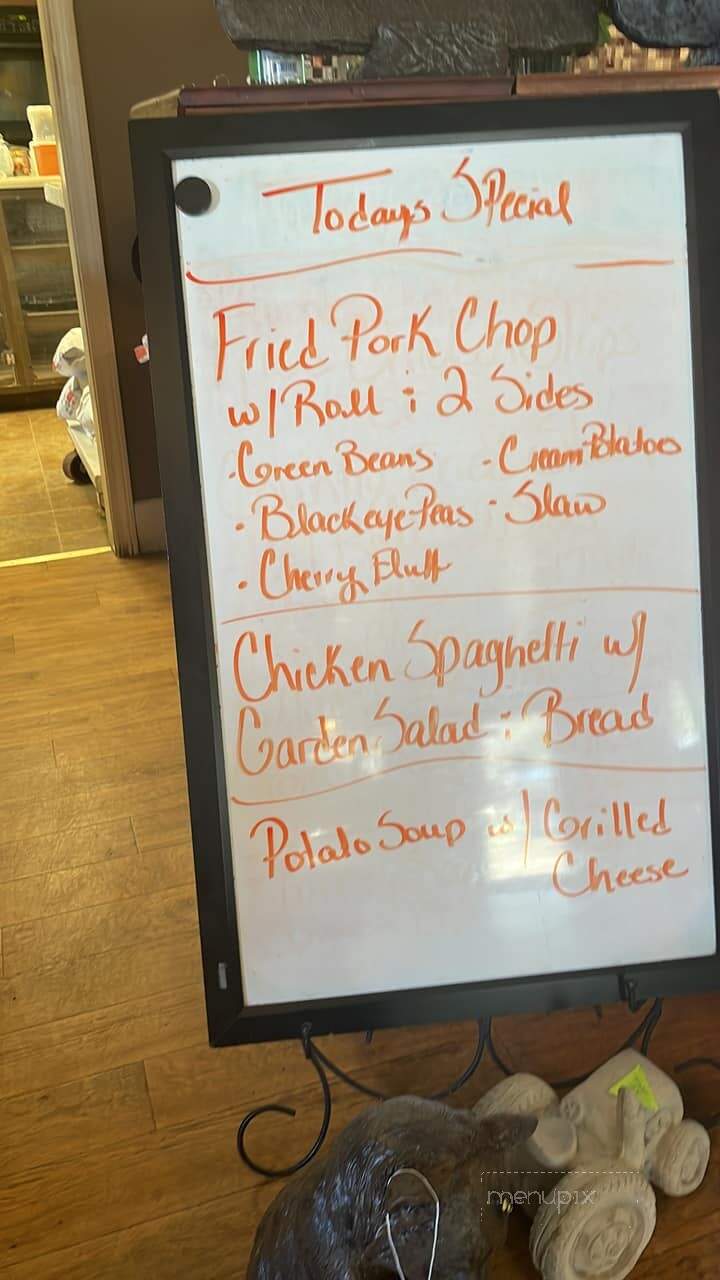 Todays Special
Fried Pork Chop
w/ Roll & 2 Sides
· Green Beans - Cream Potatoes
· Blackeye Peas · Slaw
· Cherry Fluff
Chicken Spaghetti w/
Garden Salad & Bread
Potato Soup w/ Grilled
Cheese
menupix